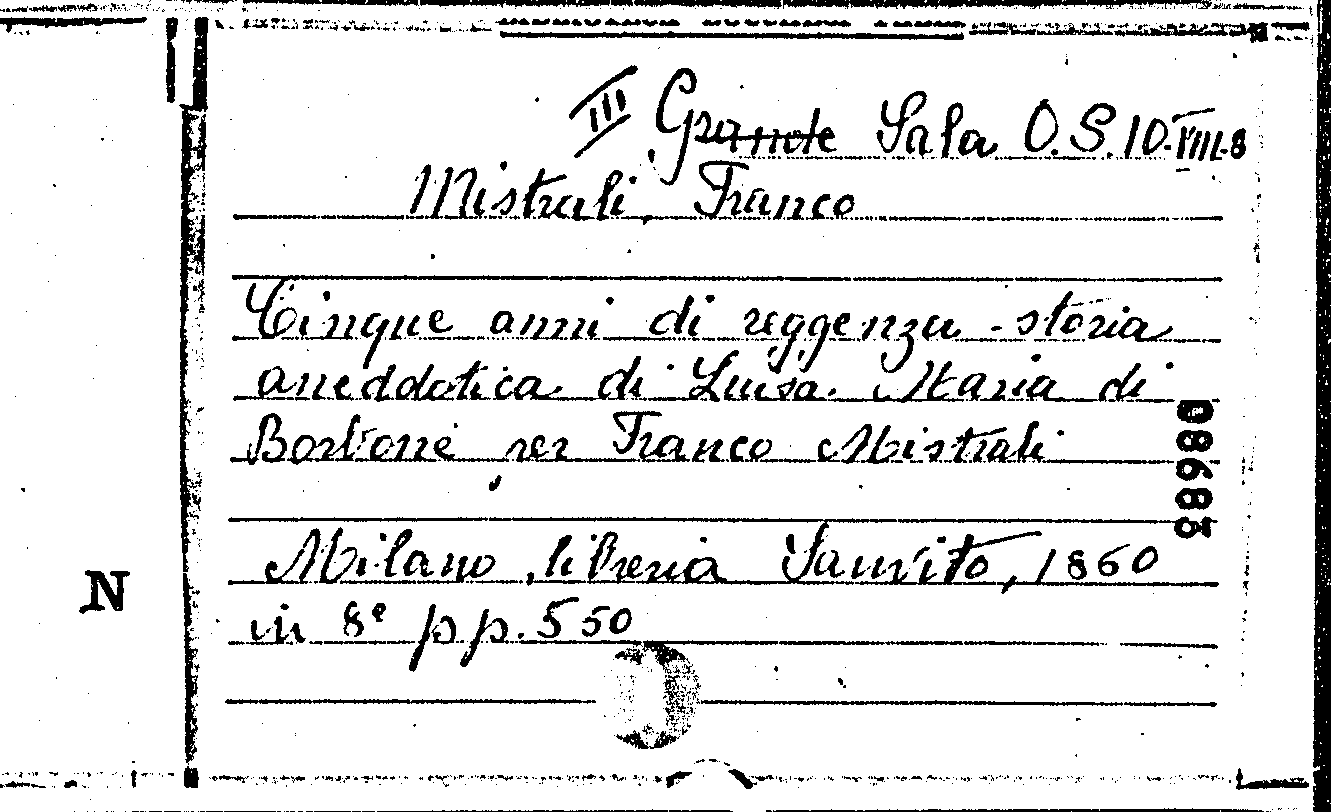 III Grande Sala O.S.10.VIII.8
Mistrali, Franco
Cinque anni di reggenza - storia
aneddotica di Luisa Maria di
Borbone per Franco Mistrali
28980
Milano, libreria Sanvito, 1860
in 8º pp. 550
N